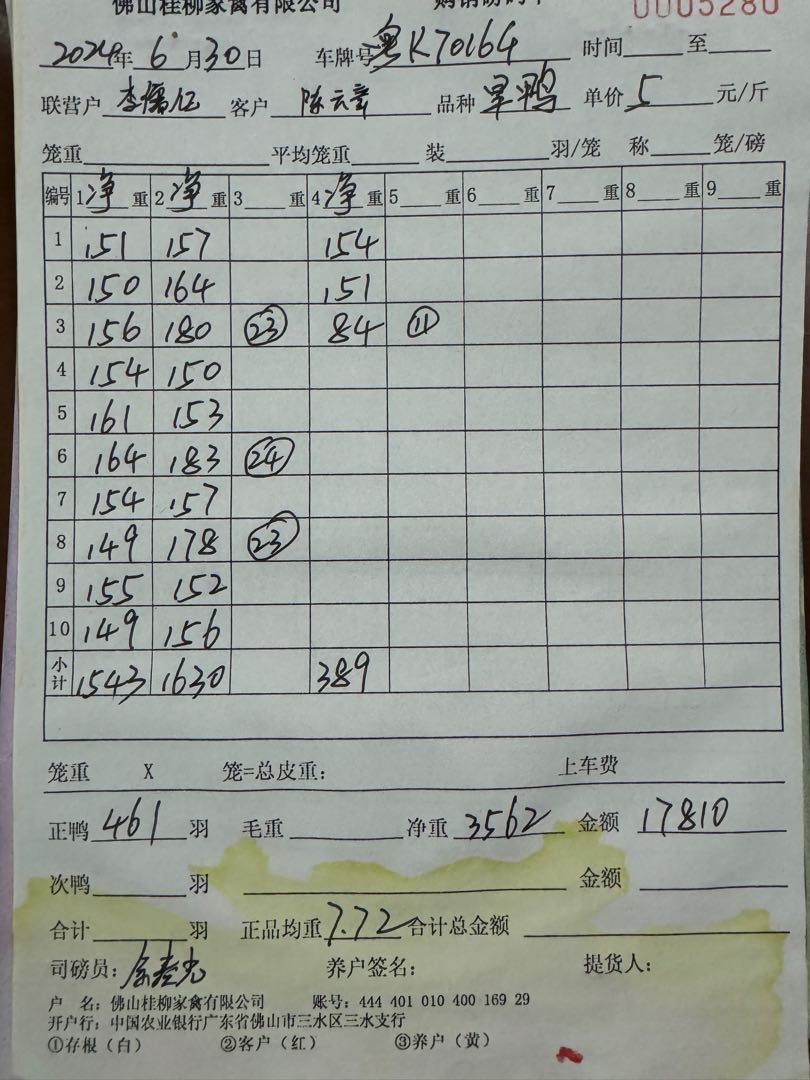 佛山桂柳家禽有限公司 0005280
2024年 6 月 30 日 车牌号 粤K70164 时间 至
联营户 李儒仁 客户 陈云章 品种 旱鸭 单价 5 元/斤
笼重 平均笼重 装 羽/笼 称 笼/磅
编号 1净重 2净重 3 重 4净重 5 重 6 重 7 重 8 重 9 重
1 151 157 154
2 150 164 151
3 156 180 23 84 11
4 154 150
5 161 153
6 164 183 24
7 154 157
8 149 178 23
9 155 152
10 149 156
小计 1543 1630 389
笼重 X 笼=总皮重： 上车费
正鸭 461 羽 毛重 净重 3562 金额 17810
次鸭 羽 金额
合计 羽 正品均重 7.72 合计总金额
司磅员： 养户签名： 提货人：
户 名：佛山桂柳家禽有限公司 账号：444 401 010 400 169 29
开户行：中国农业银行广东省佛山市三水区三水支行
①存根（白） ②客户（红） ③养户（黄）